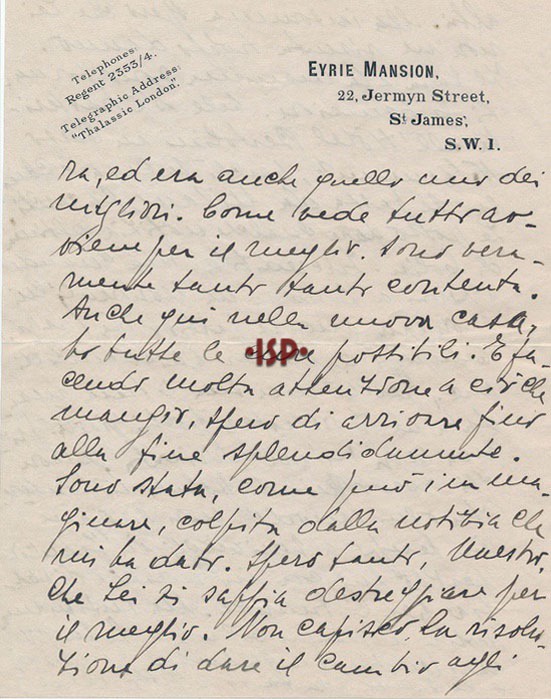 Telephones:
Regent 2353/4.
Telegraphic Address:
"Thalassic London."
EYRIE MANSION,
22, Jermyn Street,
St James',
S.W.1.
ra, ed era anche quello uno dei
migliori. Come vede tutto av-
viene per il meglio. Sono vera-
mente tanto tanto contenta.
Anche qui nella nuova casa,
ho tutte le cure possibili. E fa-
cendo molta attenzione a ciò che
mangio, spero di arrivare fino
alla fine splendidamente.
Sono stata, come può imma-
ginare, colpita dalla notizia che
mi ha dato. Spero tanto, Maestro,
che Lei si sappia destreggiare per
il meglio. Non capisco la risolu-
zione di dare il cambio agli
ISP